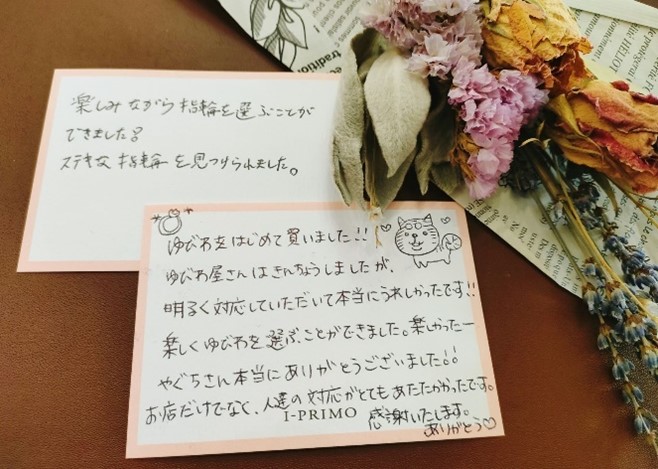 楽しみながら指輪を選ぶことが
できました♪
ステキな指輪を見つけられました。
ゆびわをはじめて買いました!!
ゆびわ屋さんはきんちょうしましたが、
明るく対応していただいて本当にうれしかったです!!
楽しくゆびわを選ぶことができました。楽しかったー
やぐちさん本当にありがとうございました!!
お店だけでなく、人達の対応がとてもあたたかかったです。
I-PRIMO 感謝いたします。
ありがとう♡